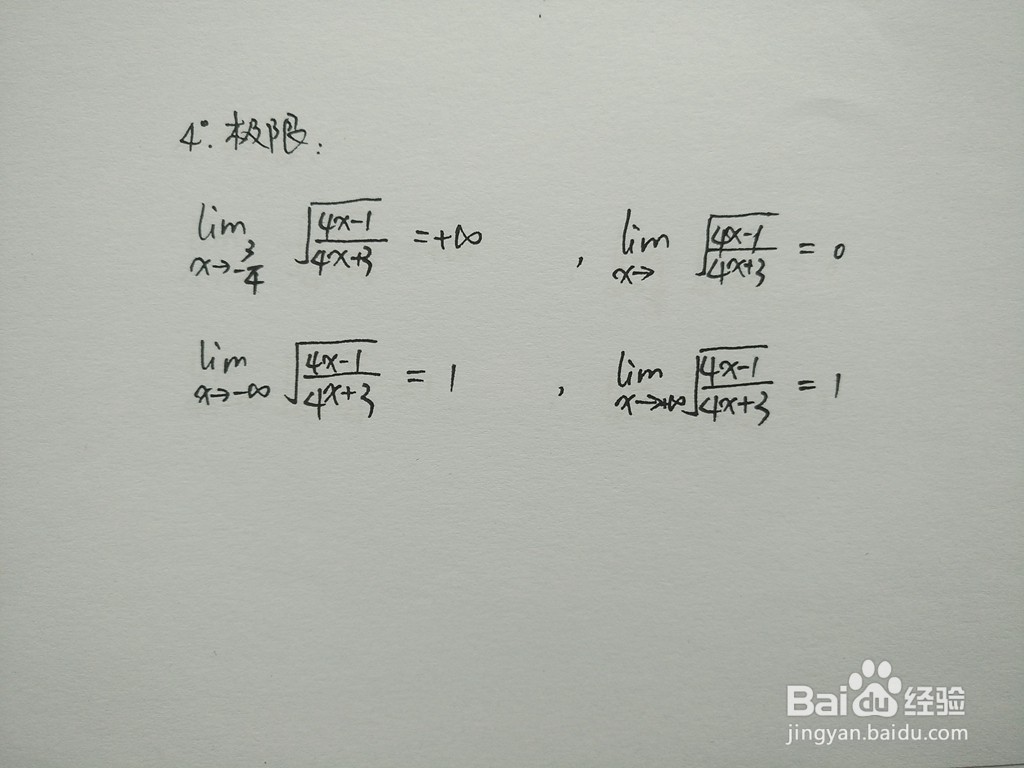 4°. 极限:
lim x→-3/4 √((4x-1)/(4x+3)) = +∞ , lim x→ √((4x-1)/(4x+3)) = 0
lim x→-∞ √((4x-1)/(4x+3)) = 1 , lim x→+∞ √((4x-1)/(4x+3)) = 1
Baidu 经验
jingyan.baidu.com